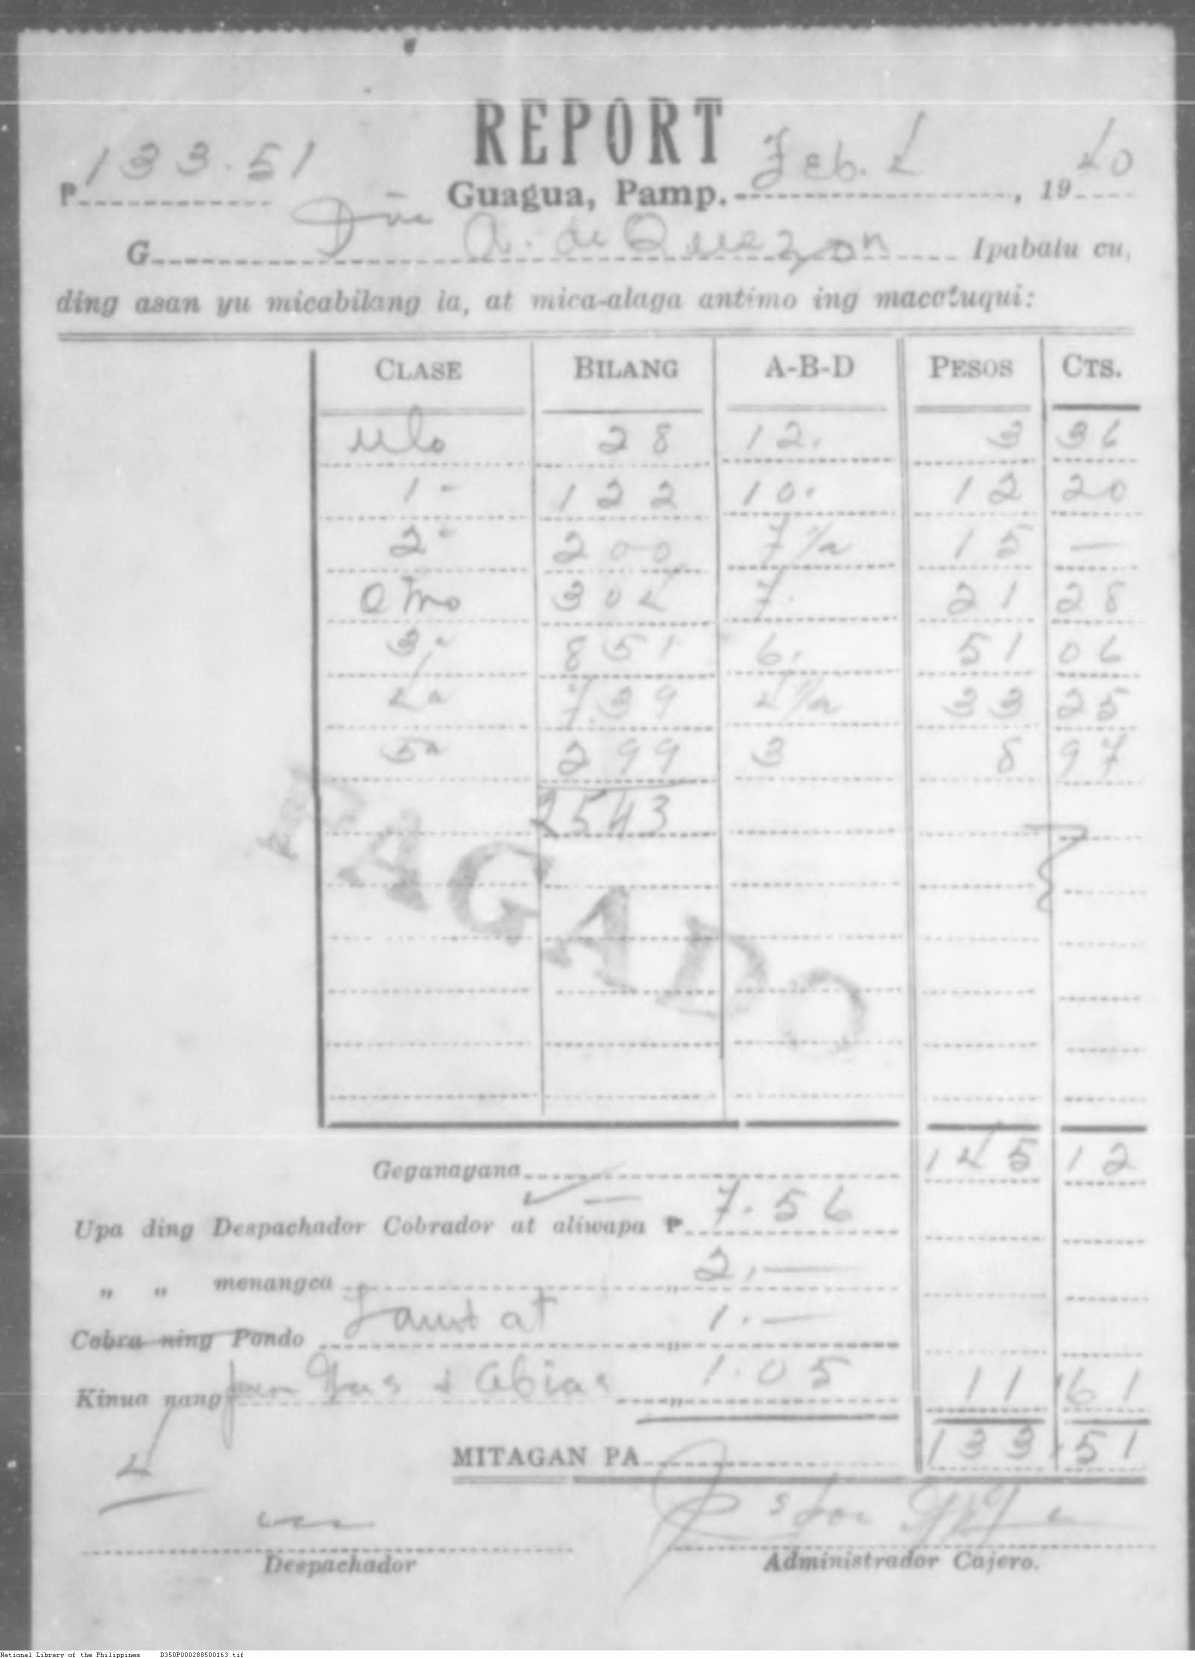 REPORT
₱ 133.51 Guagua, Pamp. Feb. 4, 1940
G Dña A. de Quezon Ipabalu cu,
ding asan yu micabilang ia, at mica-alaga antimo ing macatuqui:
CLASE BILANG A-B-D PESOS CTS.
Ulo 28 12. 3 36
1a 122 10. 12 20
2a 200 7 1/2 15 —
Otro 304 7. 21 28
3a 851 6. 51 06
4a 739 4 1/2 33 25
5a 299 3 8 97
2543
PAGADO
Geganagana 145 12
Upa ding Despachador Cobrador at aliwapa ₱ 7.56
„ „ menangca „ 2.—
Cobra ning Pondo at „ 1.—
Kinua nang Gas „ 1.05 11 61
4
MITAGAN PA 133.51
Despachador
Administrador Cajero.
National Library of the Philippines D350P000288500163.tif